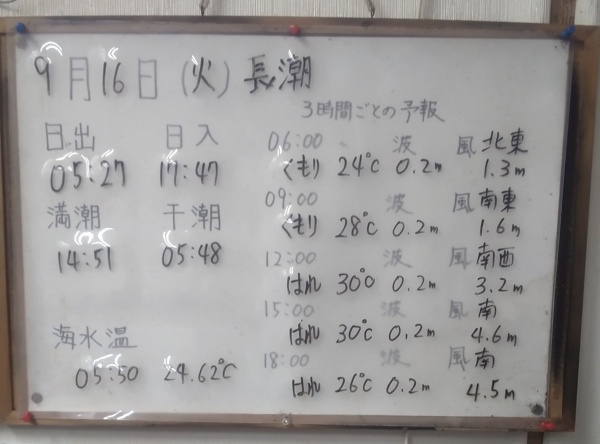 9月16日(火)長潮
日出 日入
05:27 17:47
満潮 干潮
14:51 05:48
海水温
05:50 24.62℃
3時間ごとの予報
06:00 波 風 北東
くもり 24℃ 0.2m 1.3m
09:00 波 風 南東
くもり 28℃ 0.2m 1.6m
12:00 波 風 南西
はれ 30℃ 0.2m 3.2m
15:00 波 風 南
はれ 30℃ 0.2m 4.6m
18:00 波 風 南
はれ 26℃ 0.2m 4.5m